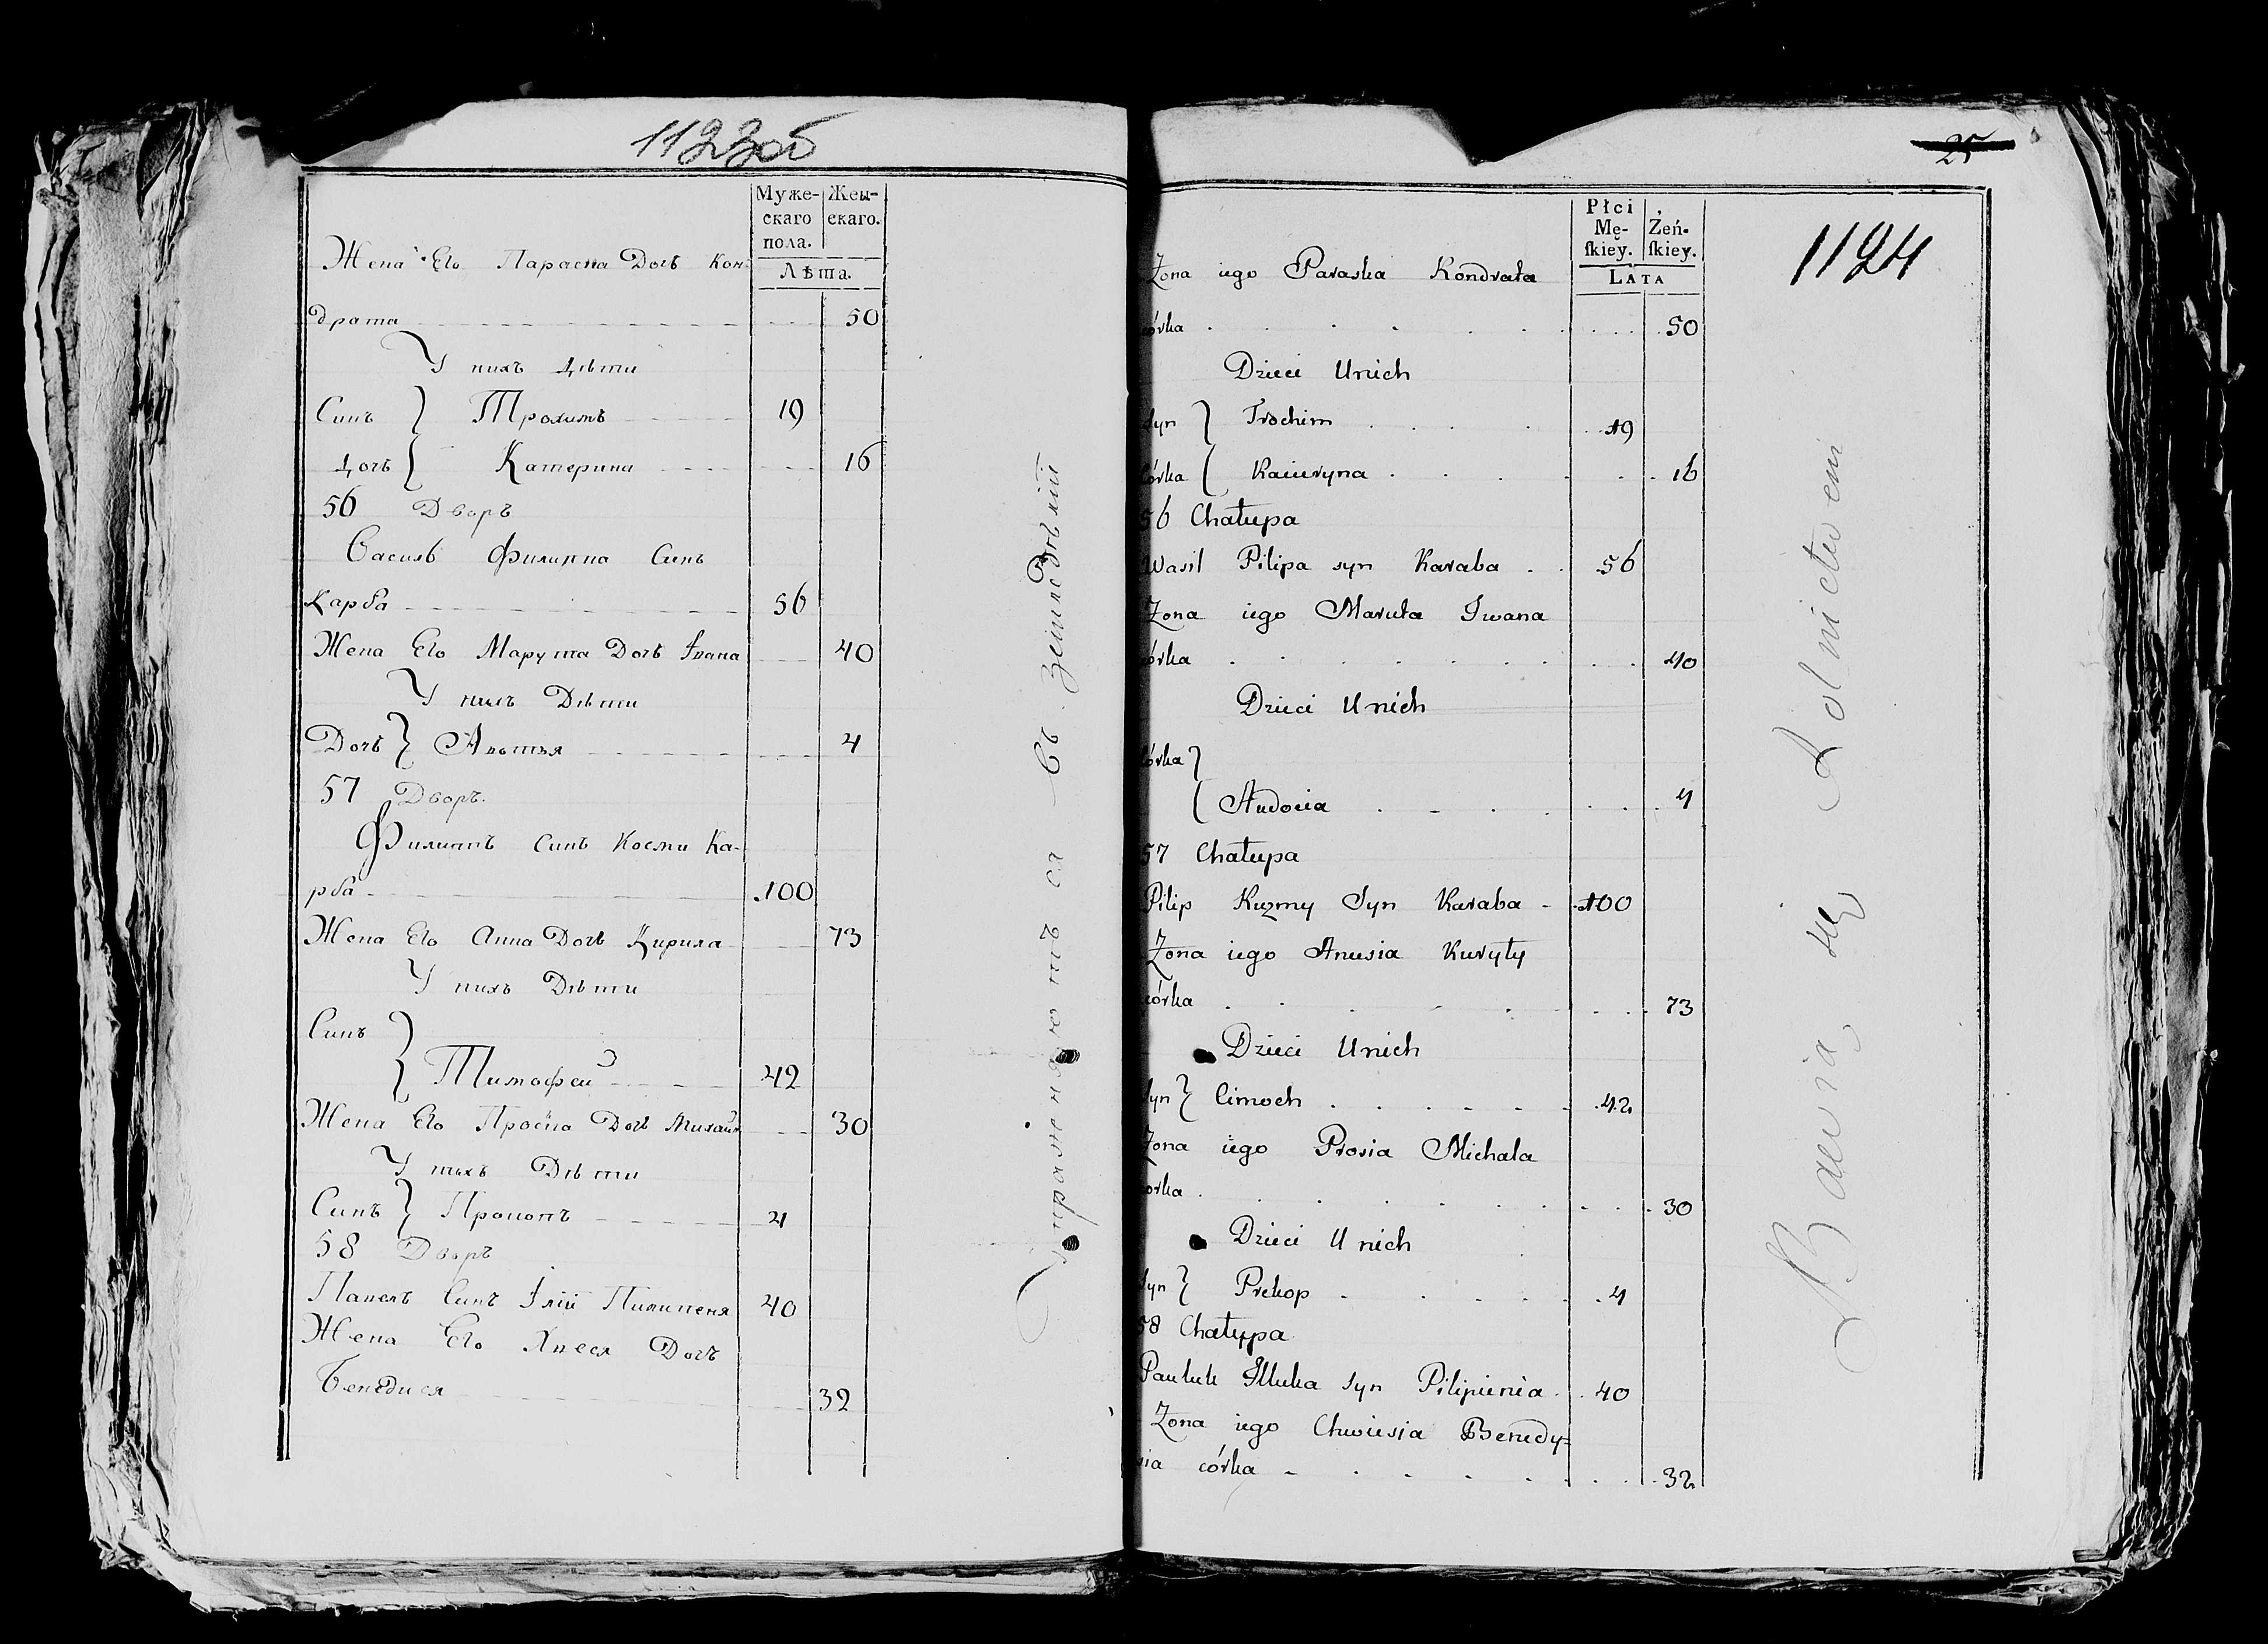 1123об
Муже-
скаго
пола.
Жен-
скаго.
Лѣта.
Жена Его Параска Дочь Кон-
драта 50
У нихъ Дѣти
Синъ } Трохимъ 19
Дочь { Катерина 16
56 Дворъ
Василь Филиппа Синъ
Карба 56
Жена Его Марута Дочь Івана 40
У нихъ Дѣти
Дочь } Авотья 4
57 Дворъ.
Филиппъ Синъ Косми Ка-
рба 100
Жена Его Анна Дочь Кирила 73
У нихъ Дѣти
Синъ }
Тимофей 42
Жена Его Прося Дочь Михайл 30
У нихъ Дѣти
Синъ } Прокопъ 4
58 Дворъ
Павелъ Синъ Ілїи Пилипеня 40
Жена Его Хвеся Дочь
Бенедися 32
Упражняются въ Земледѣлїи
25
1124
Płci
Mę-
skiey.
Żeń-
skiey.
LATA
Żona iego Paraska Kondrata
córka 50
Dzieci Unich
Syn } Trochim 19
Córka { Kaciuryna 16
56 Chałupa
Wasil Pilipa syn Karaba 56
Żona iego Maruta Iwana
córka 40
Dzieci Unich
Córka }
{ Audocia 4
57 Chałupa
Pilip Kuzmy Syn Karaba 100
Żona iego Anusia Kuryły
córka 73
Dzieci Unich
Syn } Cimoch 42
Żona iego Prosia Michala
corka 30
Dzieci Unich
Syn } Prekop 4
58 Chałuppa
Pauluk Illuka Syn Pilipienia 40
Żona iego Chwiesia Benedy=
sia córka 32
Bawią się Rolnictwem